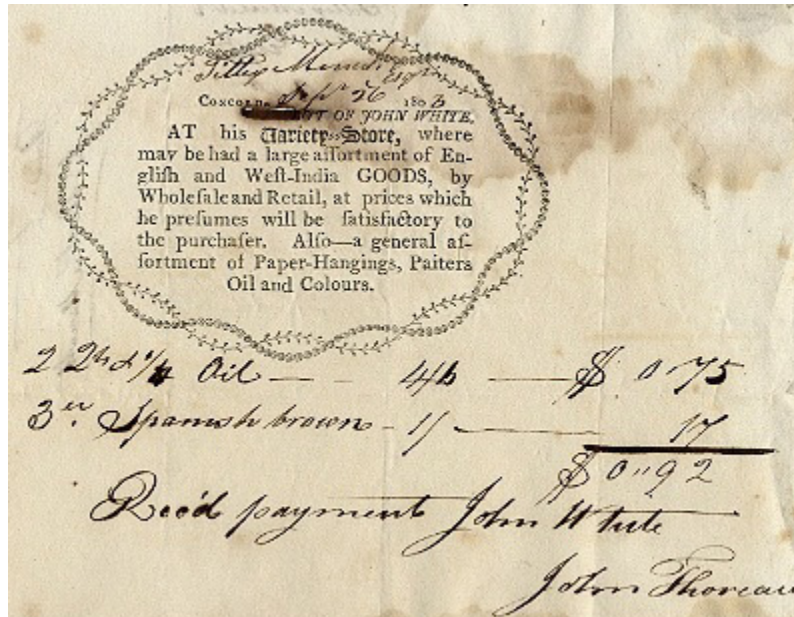 Tilley Merrick Esqr
Concord, Sepr 26 1803
BOUGHT OF JOHN WHITE,
AT his Variety-Store, where
may be had a large aſſortment of En-
gliſh and Weſt-India GOODS, by
Wholeſale and Retail, at prices which
he preſumes will be ſatisfactory to
the purchaſer. Alſo—a general aſ-
ſortment of Paper-Hangings, Paiters
Oil and Colours.
2 Oil — 4/6 — $ 0.75
3 Spanish brown - 1/ — 17
$ 0"92
Rec'd payment John White
John Thoreau